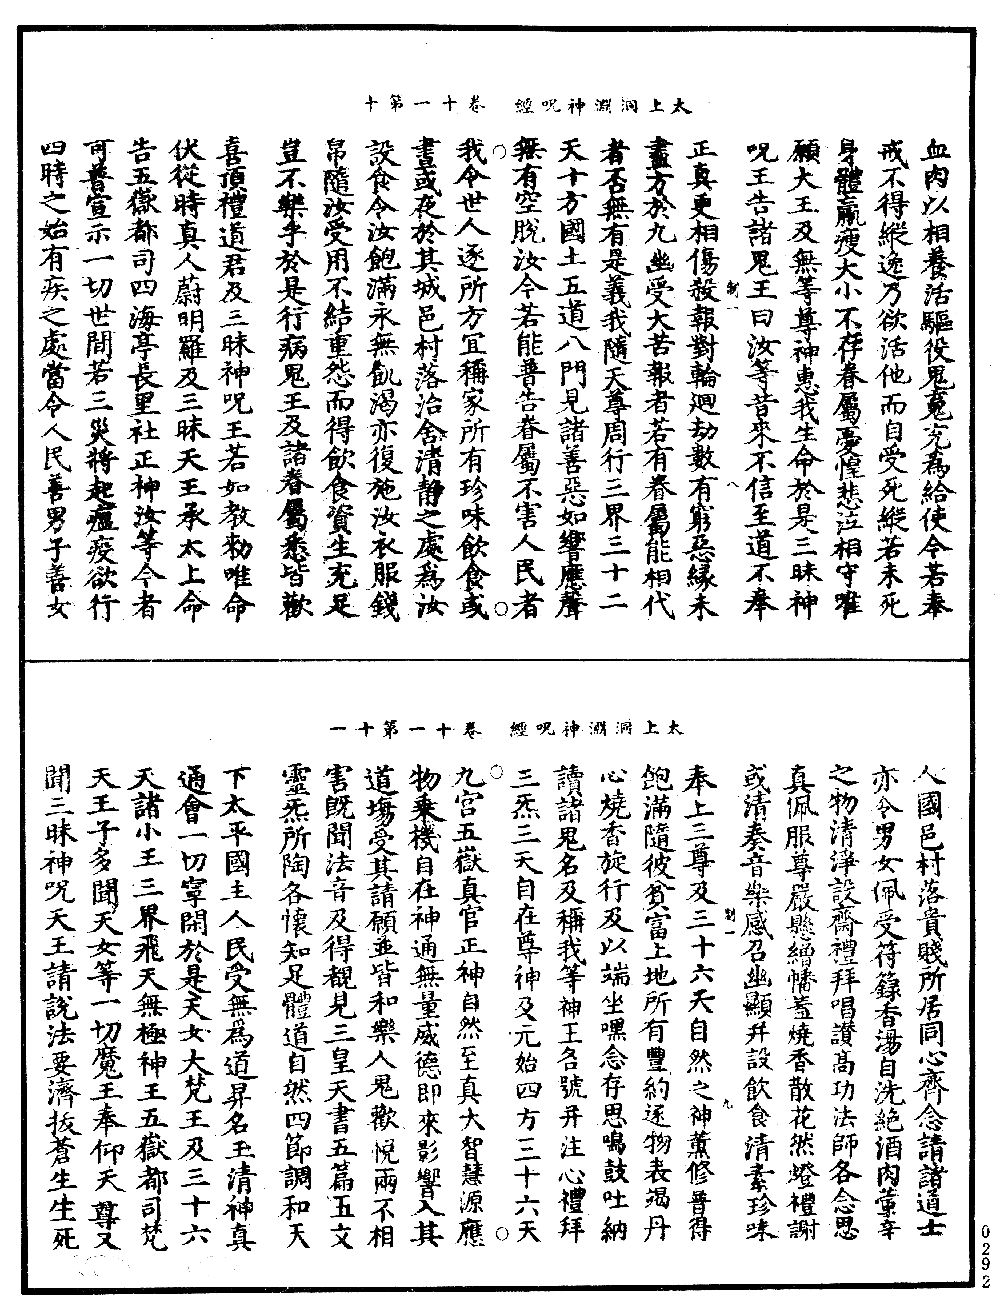 太上洞淵神呪經　卷十一第十
血肉以相養活驅役鬼魔充為給使今若奉
戒不得縱逸乃欲活他而自受死縱若未死
身體羸瘦大小不存眷屬憂惶悲泣相守唯
願大王及無等尊神惠我生命於是三昧神
呪王告諸鬼王曰汝等昔來不信至道不奉
制一　八
正真更相傷殺報對輪迴劫數有窮惡緣未
盡方於九幽受大苦報者若有眷屬能相代
者否無有是義我隨天尊周行三界三十二
天十方國土五道八門見諸善惡如響應聲
無有空脫汝今若能普告眷屬不害人民者
我令世人逐所方宜稱家所有珍味飲食或
晝或夜於其城邑村落治舍清靜之處為汝
設食令汝飽滿永無飢渴亦復施汝衣服錢
帛隨汝受用不結重怨而得飲食資生充足
豈不樂乎於是行病鬼王及諸眷屬悉皆歡
喜頂禮道君及三昧神呪王若如教勑唯命
伏從時真人蔚明羅及三昧天王承太上命
告五嶽都司四海亭長里社正神汝等今者
可普宣示一切世間若三災將起瘟疫欲行
四時之始有疾之處當令人民善男子善女
太上洞淵神呪經　卷十一第十一
人國邑村落貴賤所居同心齊念請諸道士
亦令男女佩受符籙香湯自洗絶酒肉葷辛
之物清淨設齋禮拜唱讚高功法師各念思
真佩服尊嚴懸繒幡蓋燒香散花然燈禮謝
或清奏音樂感召幽顯幷設飲食清素珍味
制一　九
奉上三尊及三十六天自然之神薰修普得
飽滿隨彼貧富上地所有豐約逐物表竭丹
心燒香旋行及以端坐嘿念存思鳴鼓吐納
讀諸鬼名及稱我等神王名號幷注心禮拜
三炁三天自在尊神及元始四方三十六天
九宮五嶽真官正神自然至真大智慧源應
物乘機自在神通無量威德即來影響入其
道場受其請願並皆和樂人鬼歡悅兩不相
害既聞法音及得覩見三皇天書五篇五文
靈炁所陶各懷知足體道自然四節調和天
下太平國主人民受無為道昇名玉清神真
通會一切寧閑於是天女大梵王及三十六
天諸小王三界飛天無極神王五嶽都司梵
天王子多聞天女等一切魔王奉仰天尊又
聞三昧神呪天王請說法要濟拔蒼生生死
0292